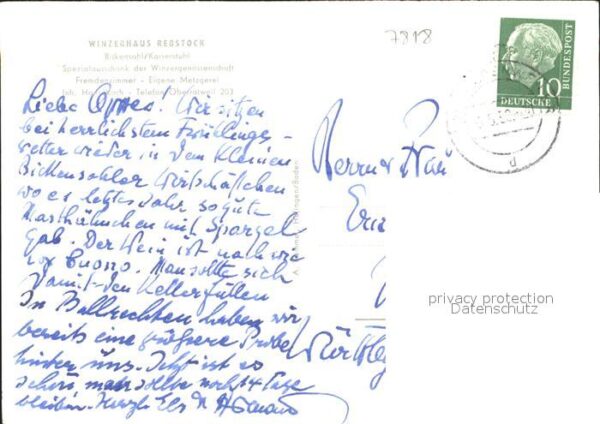 7818
WINZERHAUS REBSTOCK
Bickensohl/Kaiserstuhl
Spezialausschank der Winzergenossenschaft
Fremdenzimmer - Eigene Metzgerei
Telefon Oberrotweil 203
DEUTSCHE
BUNDESPOST
10
Liebe Wir sitzen
bei herrlichstem Frühlings-
wetter wieder in dem kleinen
Bickensohler Wirtschäftchen
wo es letztes Jahr so gute
Masthähnchen mit Spargel
gab. Der Wein ist nach wie
vor buono. Man sollte sich
damit den Keller füllen
In Ballrechten haben wir
bereits eine größere Probe
hinter uns. Jetzt ist es
schön man sollte noch 14 Tage
bleiben. Herzl. Els
Herrn u Frau
privacy protection
Datenschutz